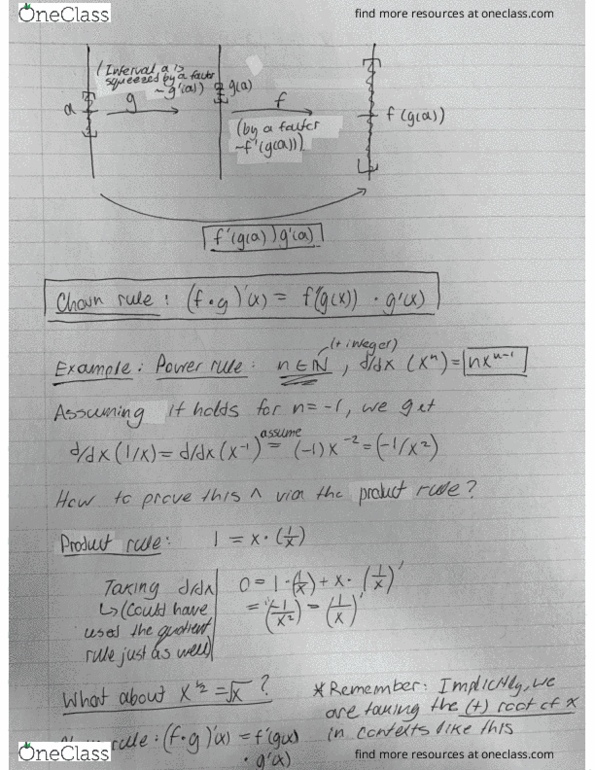 OneClass
find more resources at oneclass.com
(Interval a is
squeezed by a factor
~ g'(a))
g(a)
a
g
f
f(g(a))
(by a factor
~f'(g(a)))
f'(g(a))g'(a)
Chain rule: (f∘g)'(x) = f'(g(x)) · g'(x)
(+ integer)
Example: Power rule: n ∈ ℕ, d/dx (xⁿ) = nxⁿ⁻¹
Assuming it holds for n = -1, we get
d/dx (1/x) = d/dx (x⁻¹) assume = (-1)x⁻² = (-1/x²)
How to prove this ^ via the product rule?
Product rule: 1 = x · (1/x)
Taking d/dx 0 = 1 · (1/x) + x · (1/x)'
↳ (Could have = (-1/x²) = (1/x)'
used the quotient
rule just as well)
What about x^½ = √x ?
* Remember: Implicitly, we
are taking the (+) root of x
in contexts like this
rule: (f∘g)'(x) = f'(g(x)
· g'(x)
OneClass
find more resources at oneclass.com